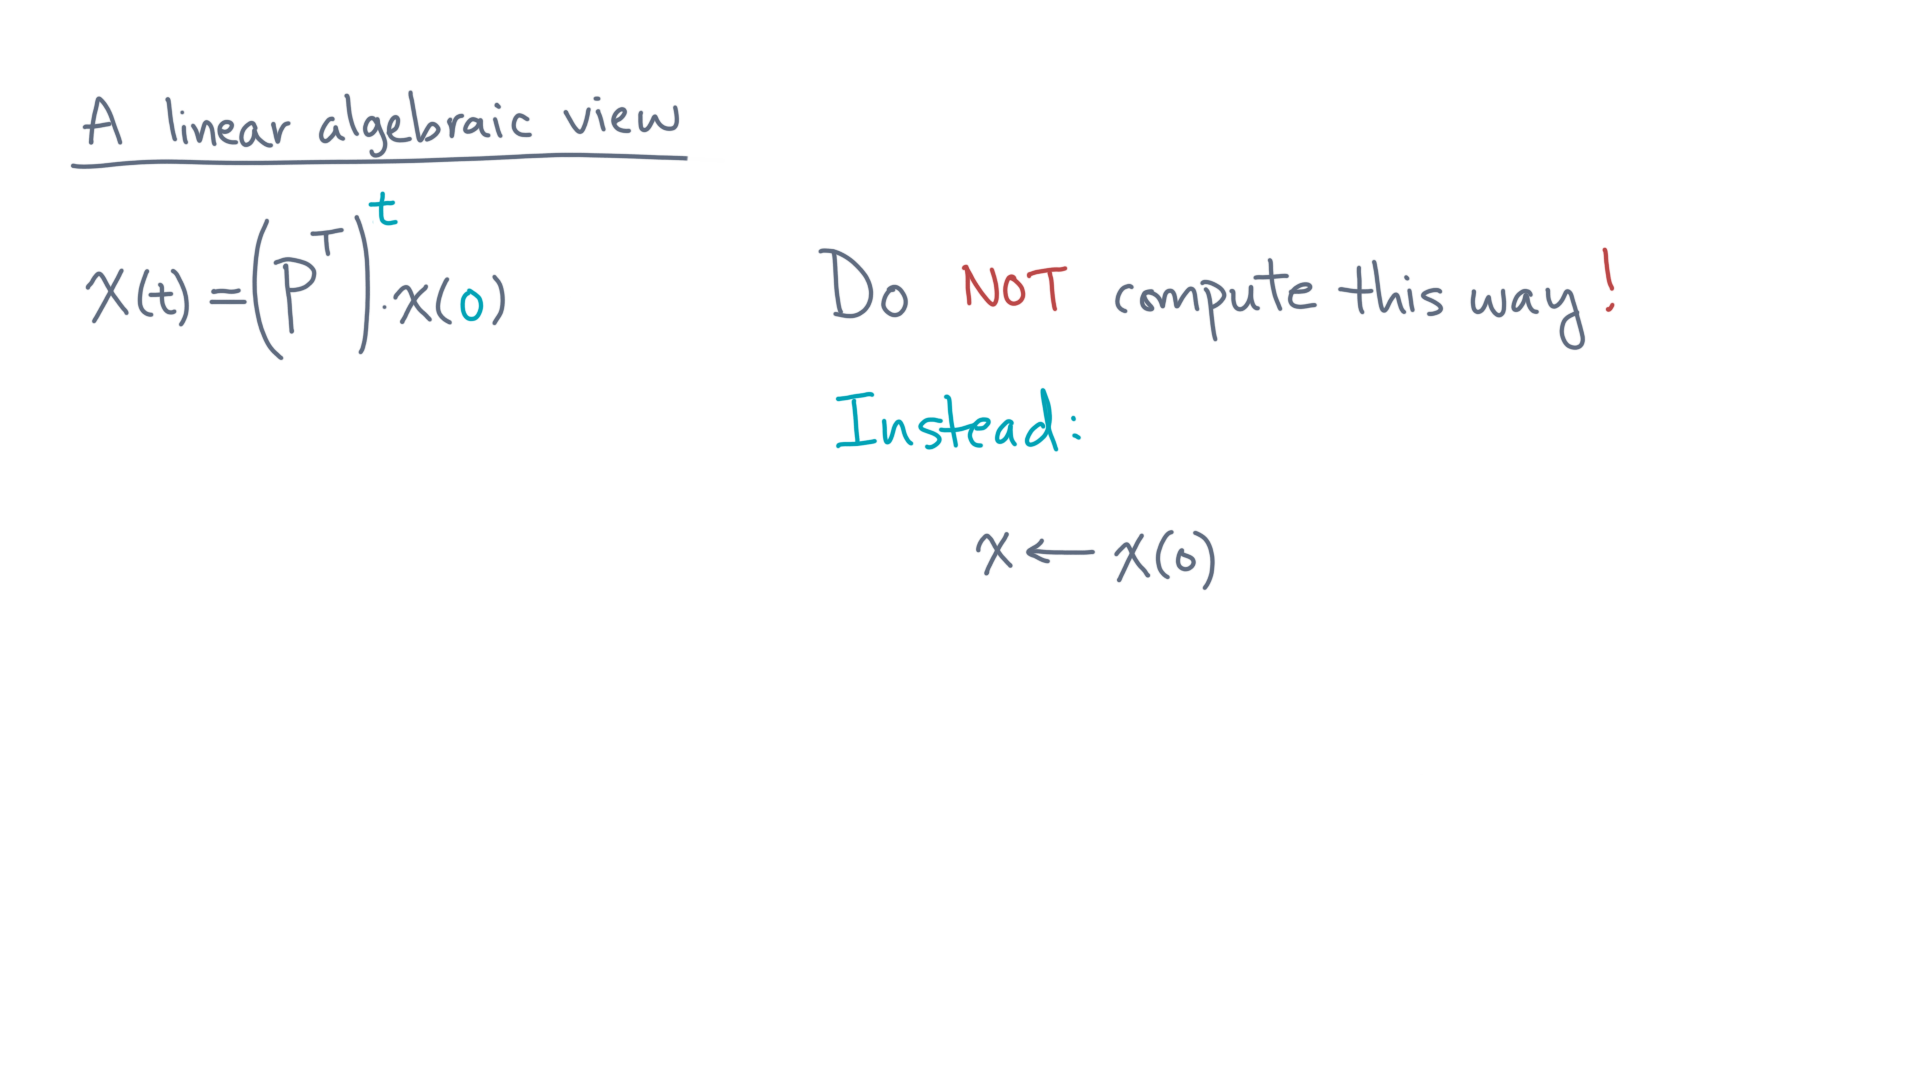 A linear algebraic view
x(t) = (P^T)^t · x(0)
Do NOT compute this way!
Instead:
x ← x(0)